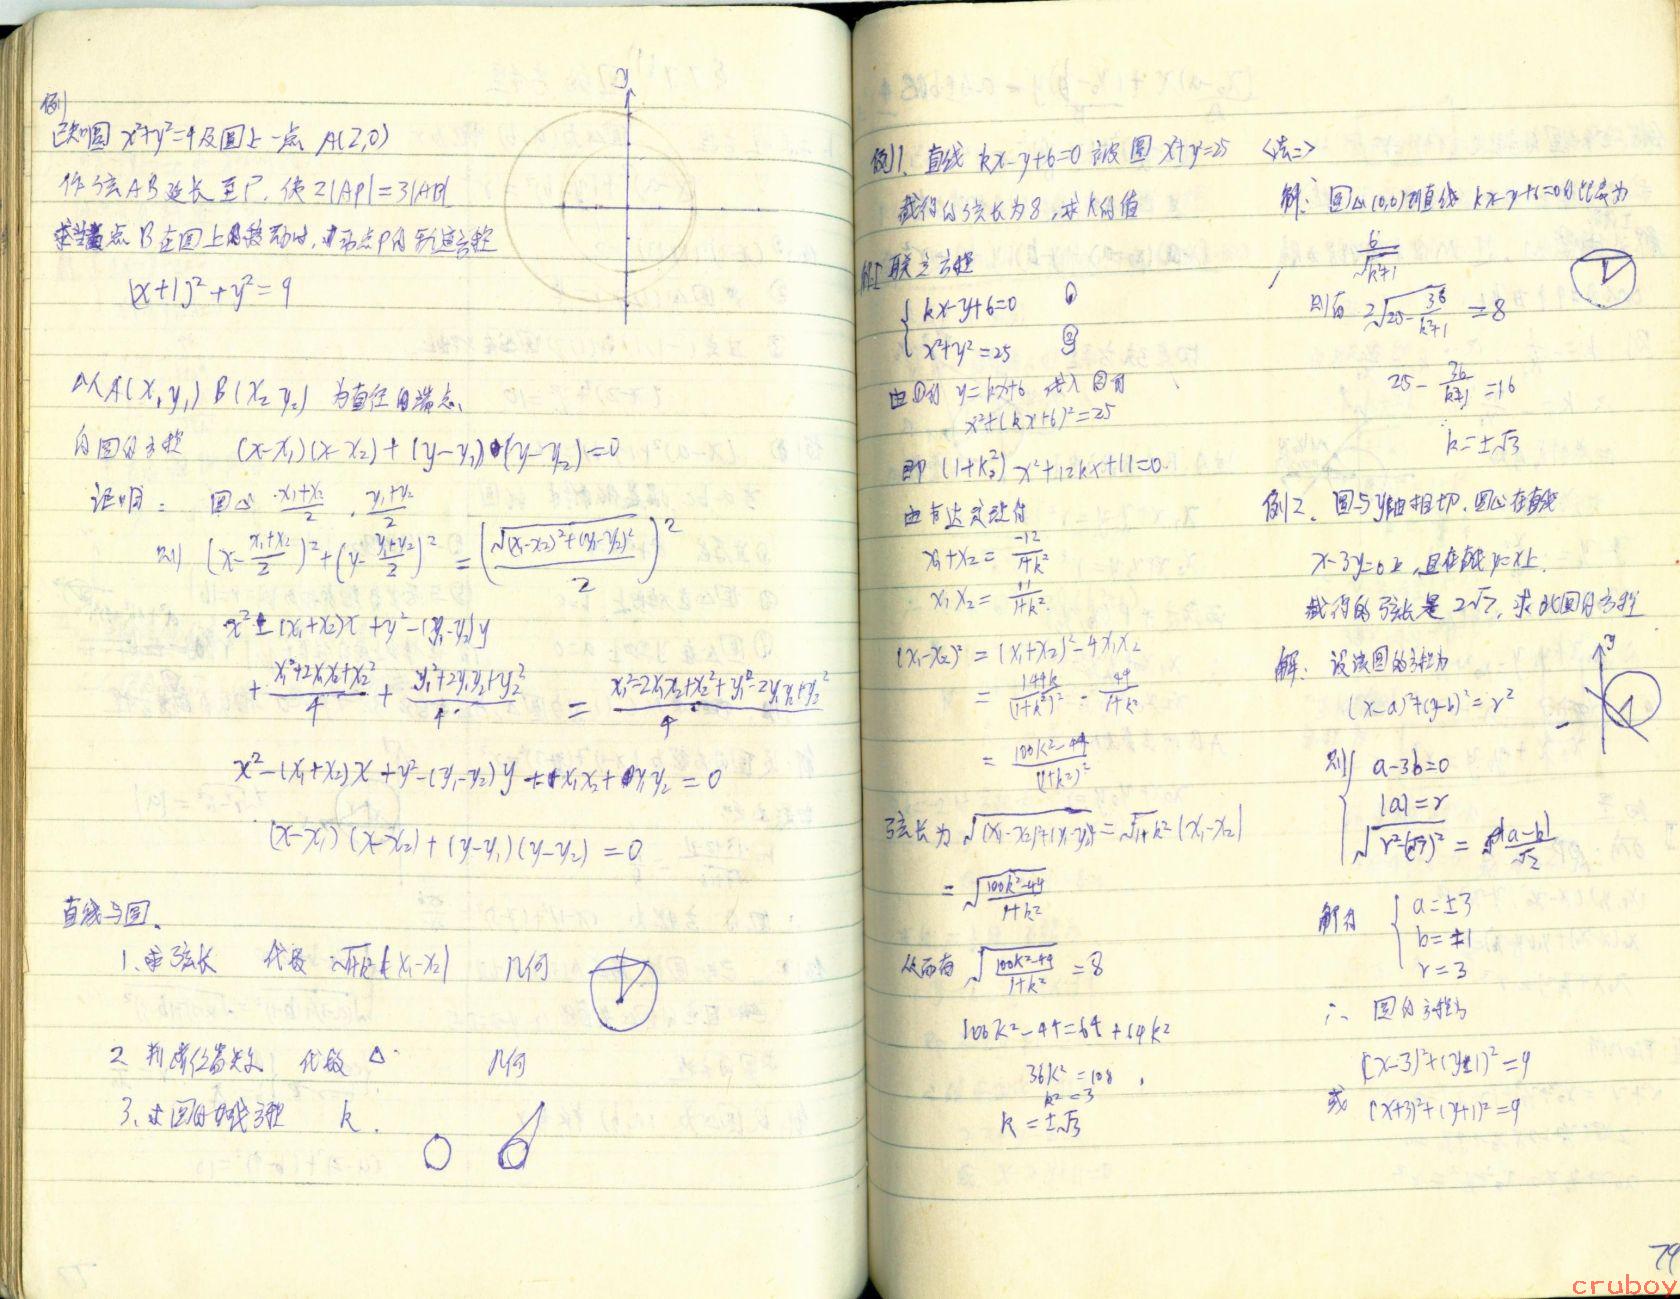 例
已知圆 x²+y²=4 及圆上一点 A(2,0)
作弦AB延长至P, 使2|AP|=3|AB|
求当点B在圆上移动时, 动点P的轨迹方程
(x+1)²+y²=9
y
以A(x₁y₁) B(x₂y₂) 为直径的端点、
的圆的方程 (x-x₁)(x-x₂)+(y-y₁)(y-y₂)=0
证明: 圆心 (x₁+x₂)/2 , (y₁+y₂)/2
则 (x-(x₁+x₂)/2)²+(y-(y₁+y₂)/2)²=(√((x₁-x₂)²+(y₁-y₂)²)/2)²
x²-(x₁+x₂)x+y²-(y₁-y₂)y
+(x₁²+2x₁x₂+x₂²)/4+(y₁²+2y₁y₂+y₂²)/4=(x₁²-2x₁x₂+x₂²+y₁²-2y₁y₂+y₂²)/4
x²-(x₁+x₂)x+y²-(y₁-y₂)y+x₁x₂+y₁y₂=0
(x-x₁)(x-x₂)+(y-y₁)(y-y₂)=0
直线与圆.
1、求弦长 代数 √1+k²|x₁-x₂| 几何
2 判断位置关系 代数 Δ 几何
3、求圆的切线方程 k.
例1、直线 kx-y+6=0 被圆 x²+y²=25
截得的弦长为8, 求k的值
解: 联立方程
kx-y+6=0 ①
x²+y²=25 ②
由①得 y=kx+6 代入②得
x²+(kx+6)²=25
即 (1+k²)x²+12kx+11=0
由韦达定理得
x₁+x₂=-12/(1+k²)
x₁x₂=11/(1+k²)
(x₁-x₂)²=(x₁+x₂)²-4x₁x₂
=144k/(1+k²)²-44/(1+k²)
=(100k²-44)/(1+k²)²
弦长为 √((x₁-x₂)²+(y₁-y₂)²)=√1+k²|x₁-x₂|
=√((100k²-44)/(1+k²))
从而有 √((100k²-44)/(1+k²))=8
100k²-44=64+64k²
36k²=108
k²=3
k=±√3
<法二>
解: 圆心(0,0)到直线 kx-y+6=0的距离为
6/√(k²+1)
则有 2√(25-36/(k²+1))=8
25-36/(k²+1)=16
k=±√3
例2、圆与y轴相切、圆心在直线
x-3y=0上, 且在直线y=x上
截得的弦长是2√7, 求此圆的方程
解: 设该圆的方程为
(x-a)²+(y-b)²=r²
y
则 a-3b=0
|a|=r
√(r²-(√7)²)=|a-b|/√2
解得 a=±3
b=±1
r=3
∴ 圆的方程为
(x-3)²+(y-1)²=9
或 (x+3)²+(y+1)²=9
79
cruboy